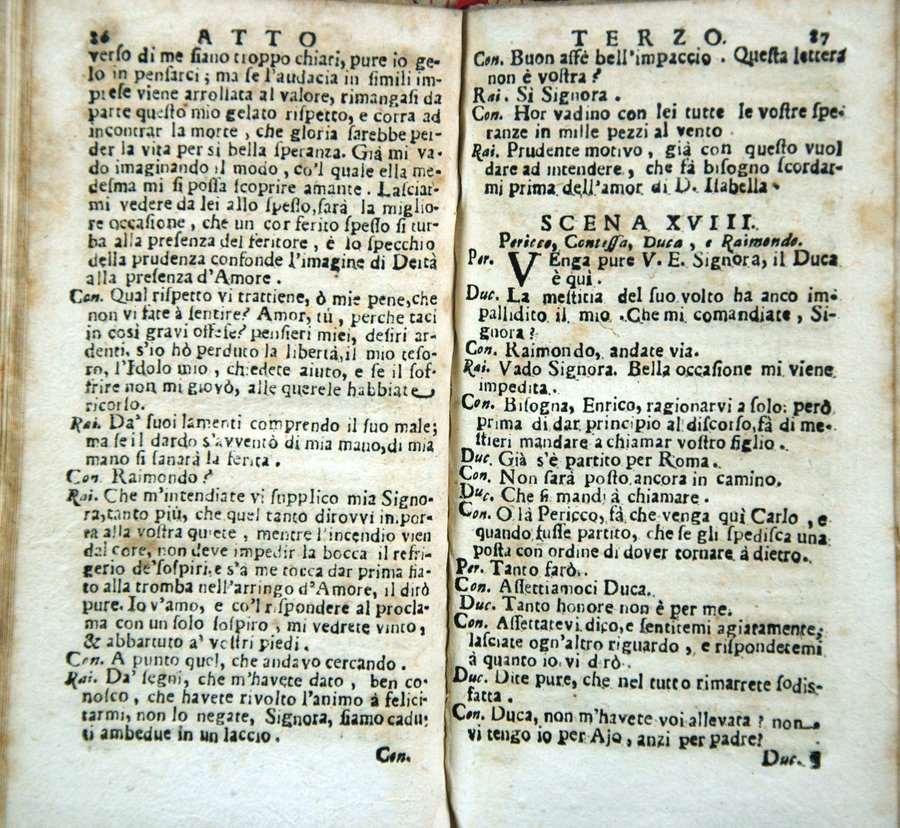 86 ATTO
verso di me siano troppo chiari, pure io ge-
lo in pensarci; ma se l'audacia in simili im-
prese viene arrollata al valore, rimangasi da
parte questo mio gelato rispetto, e corra ad
incontrar la morte, che gloria sarebbe per-
der la vita per si bella speranza. Già mi va-
do imaginando il modo, co'l quale ella me-
desma mi si possa scoprire amante. Lasciar-
mi vedere da lei allo spesso, sarà la miglio-
re occasione, che un cor ferito spesso si tur-
ba alla presenza del feritore, e lo specchio
della prudenza confonde l'imagine di Deità
alla presenza d'Amore.
Con. Qual rispetto vi trattiene, ò mie pene, che
non vi fate à sentire? Amor, tù, perche taci
in così gravi offese? pensieri miei, desiri ar-
denti, s'io hò perduto la libertà, il mio teso-
ro, l'Idolo mio, chiedete aiuto, e se il sof-
frire non mi giovò, alle querele habbiate
ricorso.
Rai. Da' suoi lamenti comprendo il suo male;
ma se il dardo s'avventò di mia mano, di mia
mano si sanarà la ferita.
Con. Raimondo?
Rai. Che m'intendiate vi supplico mia Signo-
ra, tanto più, che quel tanto dirovvi impor-
ra alla vostra quiete, mentre l'incendio vien
dal core, non deve impedir la bocca il refri-
gerio de' sospiri, e s'à me tocca dar prima fia-
to alla tromba nell'arringo d'Amore, il dirò
pure. Io v'amo, e co'l rispondere al procla-
ma con un solo sospiro, mi vedrete vinto,
& abbattuto a' vostri piedi.
Con. A punto quel, che andavo cercando.
Rai. Da' segni, che m'havete dato, ben co-
nosco, che havete rivolto l'animo à felici-
tarmi, non lo negate, Signora, siamo cadu-
ti ambedue in un laccio.
Con.
TERZO. 87
Con. Buon affè bell'impaccio. Questa lettera
non è vostra?
Rai. Sì Signora.
Con. Hor vadino con lei tutte le vostre spe-
ranze in mille pezzi al vento
Rai. Prudente motivo, già con questo vuol
dare ad intendere, che fà bisogno scordar-
mi prima dell'amor di D. Isabella.
SCENA XVIII.
Pericco, Contessa, Duca, e Raimondo.
Per. VEnga pure V. E. Signora, il Duca
è qui.
Duc. La mestitia del suo volto ha anco im-
pallidito il mio. Che mi comandiate, Si-
gnora?
Con. Raimondo, andate via.
Rai. Vado Signora. Bella occasione mi viene
impedita.
Con. Bisogna, Enrico, ragionarvi a solo: però
prima di dar principio al discorso, fà di me-
stieri mandare a chiamar vostro figlio.
Duc. Già s'è partito per Roma.
Con. Non sarà posto ancora in camino.
Duc. Che si mandi à chiamare.
Con. O là Pericco, fà che venga quì Carlo, e
quando fusse partito, che se gli spedisca una
posta con ordine di dover tornare à dietro.
Per. Tanto farò.
Con. Assettiamoci Duca.
Duc. Tanto honore non è per me.
Con. Assettatevi dico, e sentitemi agiatamente;
lasciate ogn'altro riguardo, e rispondetemi
à quanto io vi dirò.
Duc. Dite pure, che nel tutto rimarrete sodis-
fatta.
Con. Duca, non m'havete voi allevata? non
vi tengo io per Ajo, anzi per padre?
Duc.